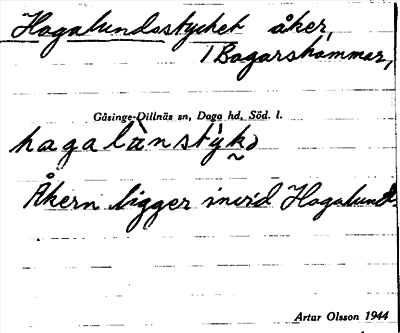 Hagalundsstycket åker,
1 Bagarshammar,
Gåsinge-Dillnäs sn, Daga hd, Söd. l.
hagalùnstỳkə
Åkern ligger invid Hagalund.
Artur Olsson 1944